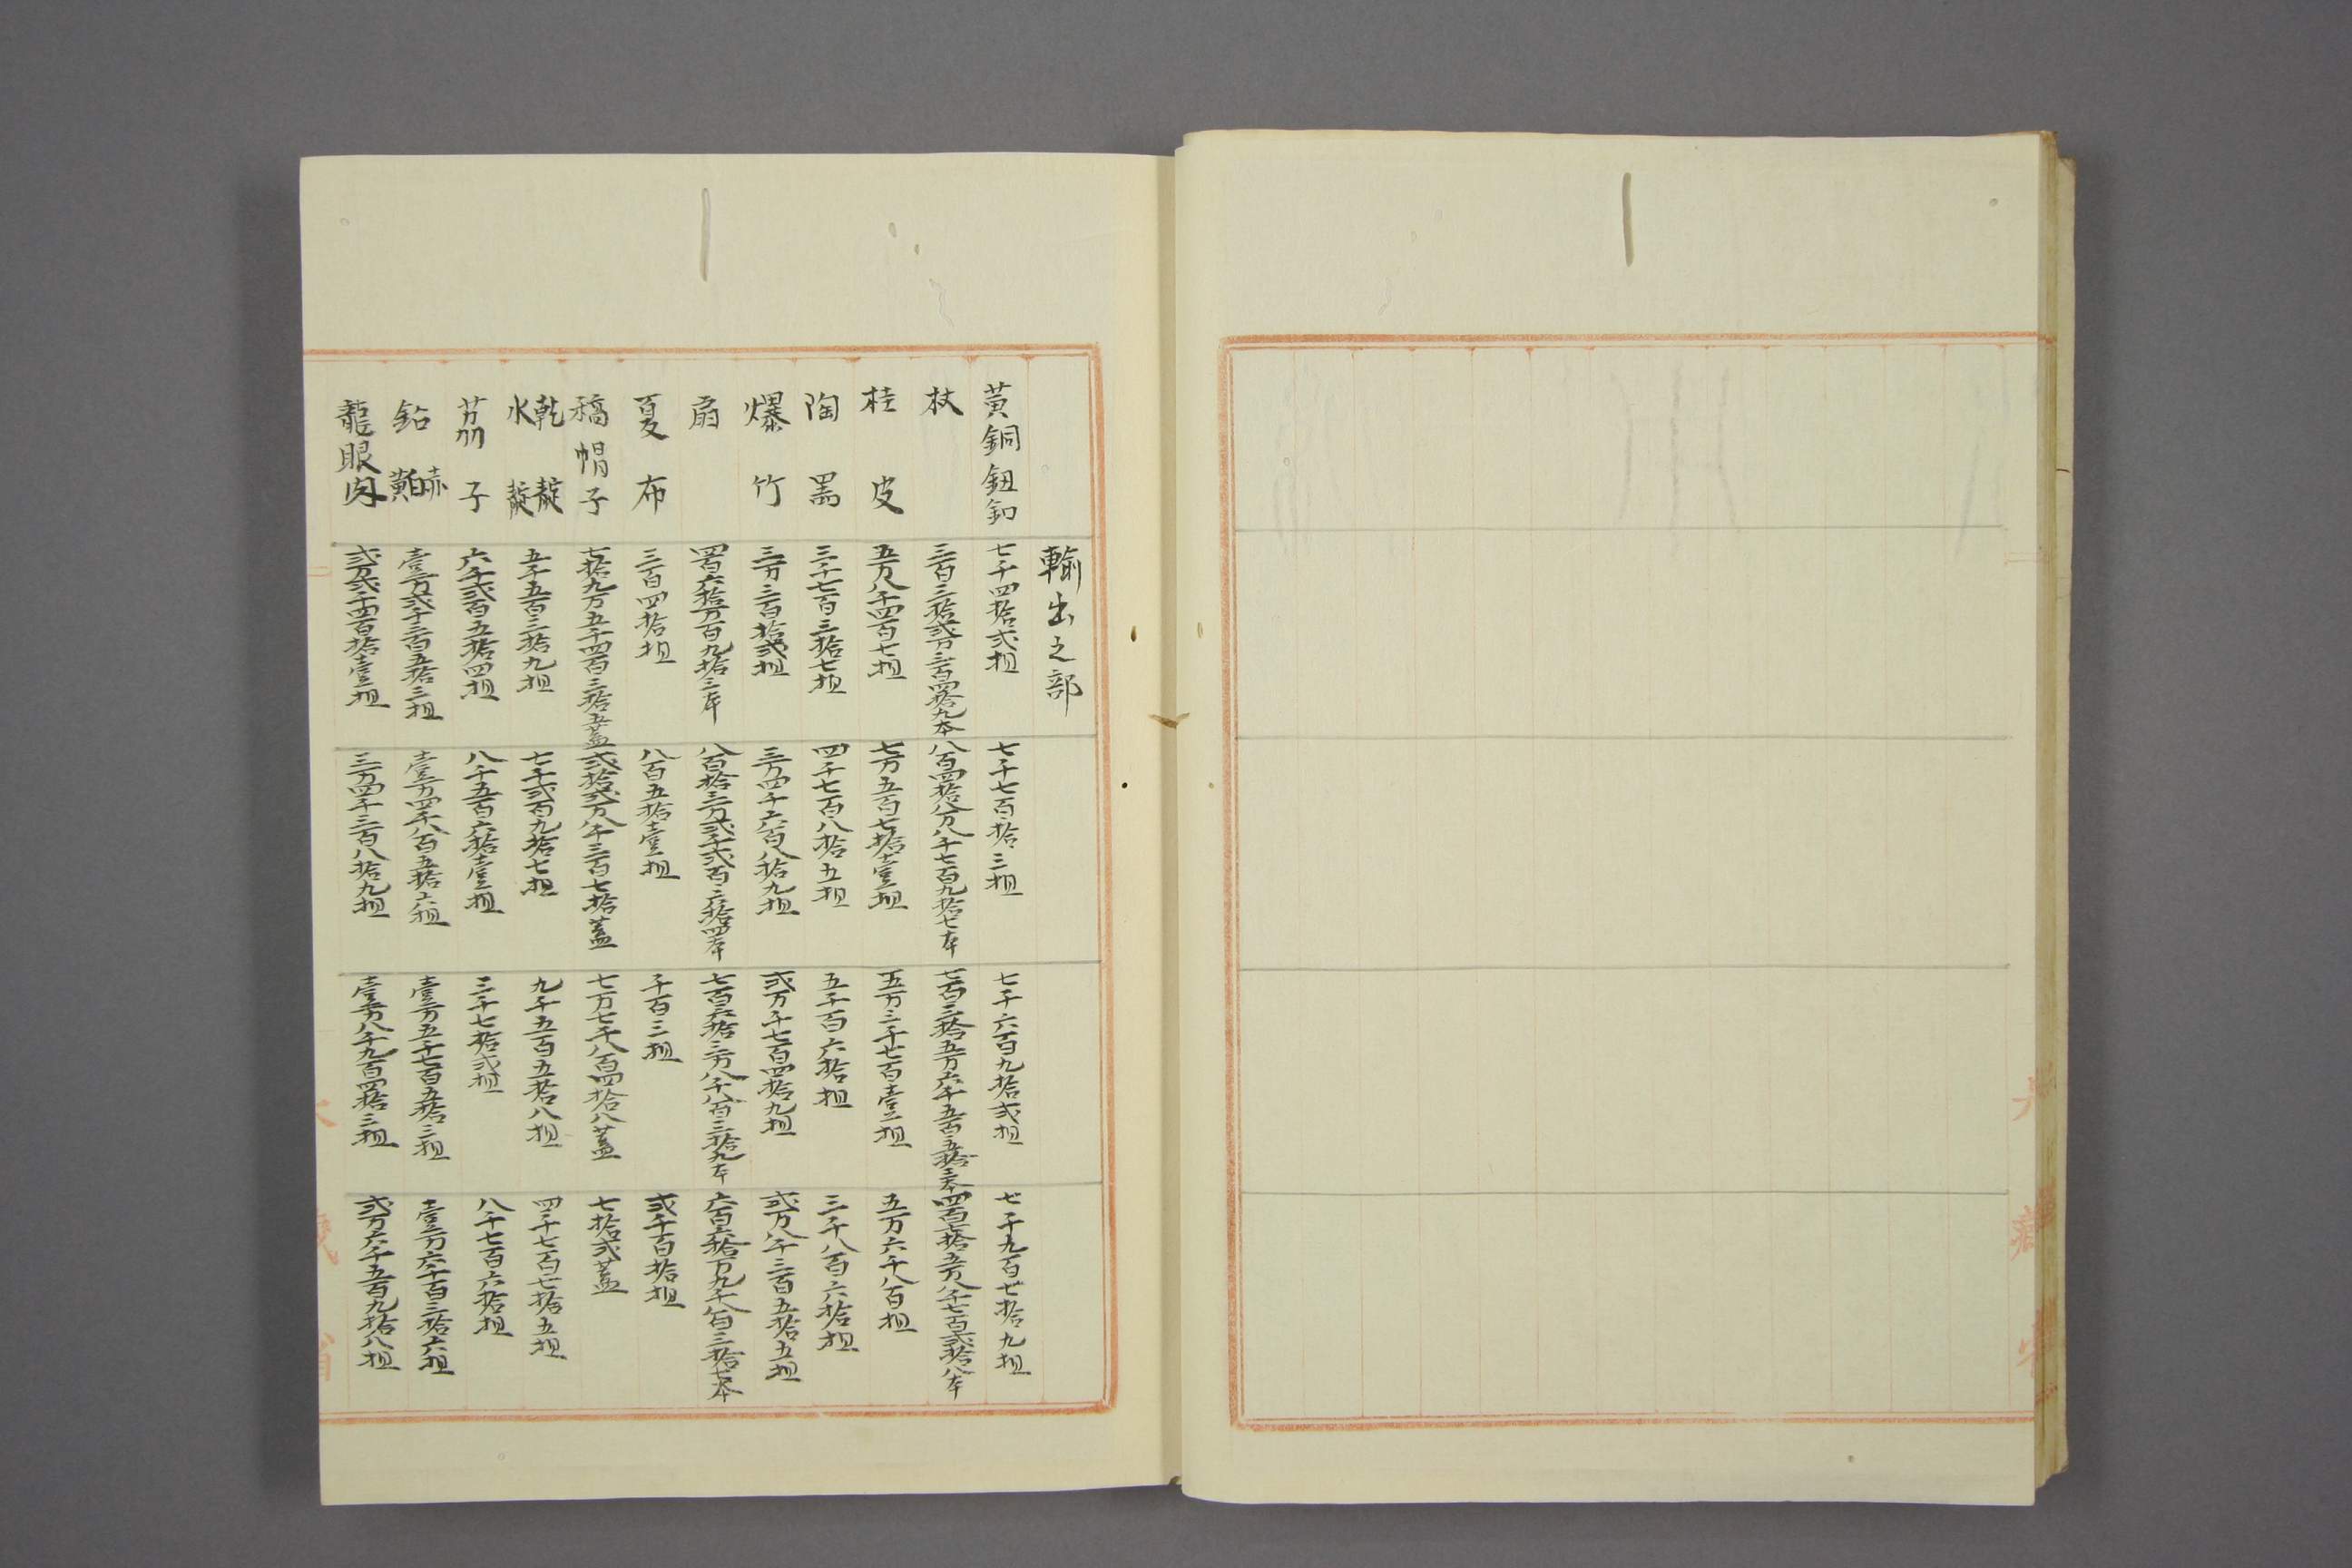 輸出之部
黄銅鈕釦 七千四拾弐担 七千七百拾三担 七千六百九拾弐担 七千九百七拾九担
杖 三百三拾弐万三百四拾九本 八百四拾八万八千七百九拾七本 七百三拾五万六千五百五拾三本 四百七拾五万八千七百弐拾八本
桂皮 五万八千四百七担 七万五百七拾壹担 五万三千七百壹担 五万六千八百担
陶噐 三千七百三拾七担 四千七百八拾五担 五千百六拾担 三千八百六拾担
爆竹 三万三百拾弐担 三万四千六百八拾九担 弐万千七百四拾九担 弐万八千三百五拾五担
扇 四百六拾万百九拾三本 八百拾三万弐千弐百六拾四本 七百六拾三万八千八百三拾九本 六百六拾万九千八百三拾七本
夏布 三百四拾担 八百五拾壹担 千百三担 弐千百拾担
稿帽子 七拾九万五千四百三拾五蓋 弐拾弐万八千三百七拾蓋 七万七千八百四拾八蓋 七拾弐蓋
乾靛 水靛 五千五百三拾九担 七千弐百九拾七担 九千五百五拾八担 四千七百七拾五担
茘子 六千弐百五拾四担 八千五百六拾壹担 三千七拾弐担 八千七百六拾担
鉛 赤白黄 壹万弐千三百五拾三担 壹万四千八百五拾六担 壹万五千七百五拾三担 壹万六千百三拾六担
龍眼肉 弐万弐千四百拾壹担 三万四千三百八拾九担 壹万八千九百四拾三担 弐万六千五百九拾八担